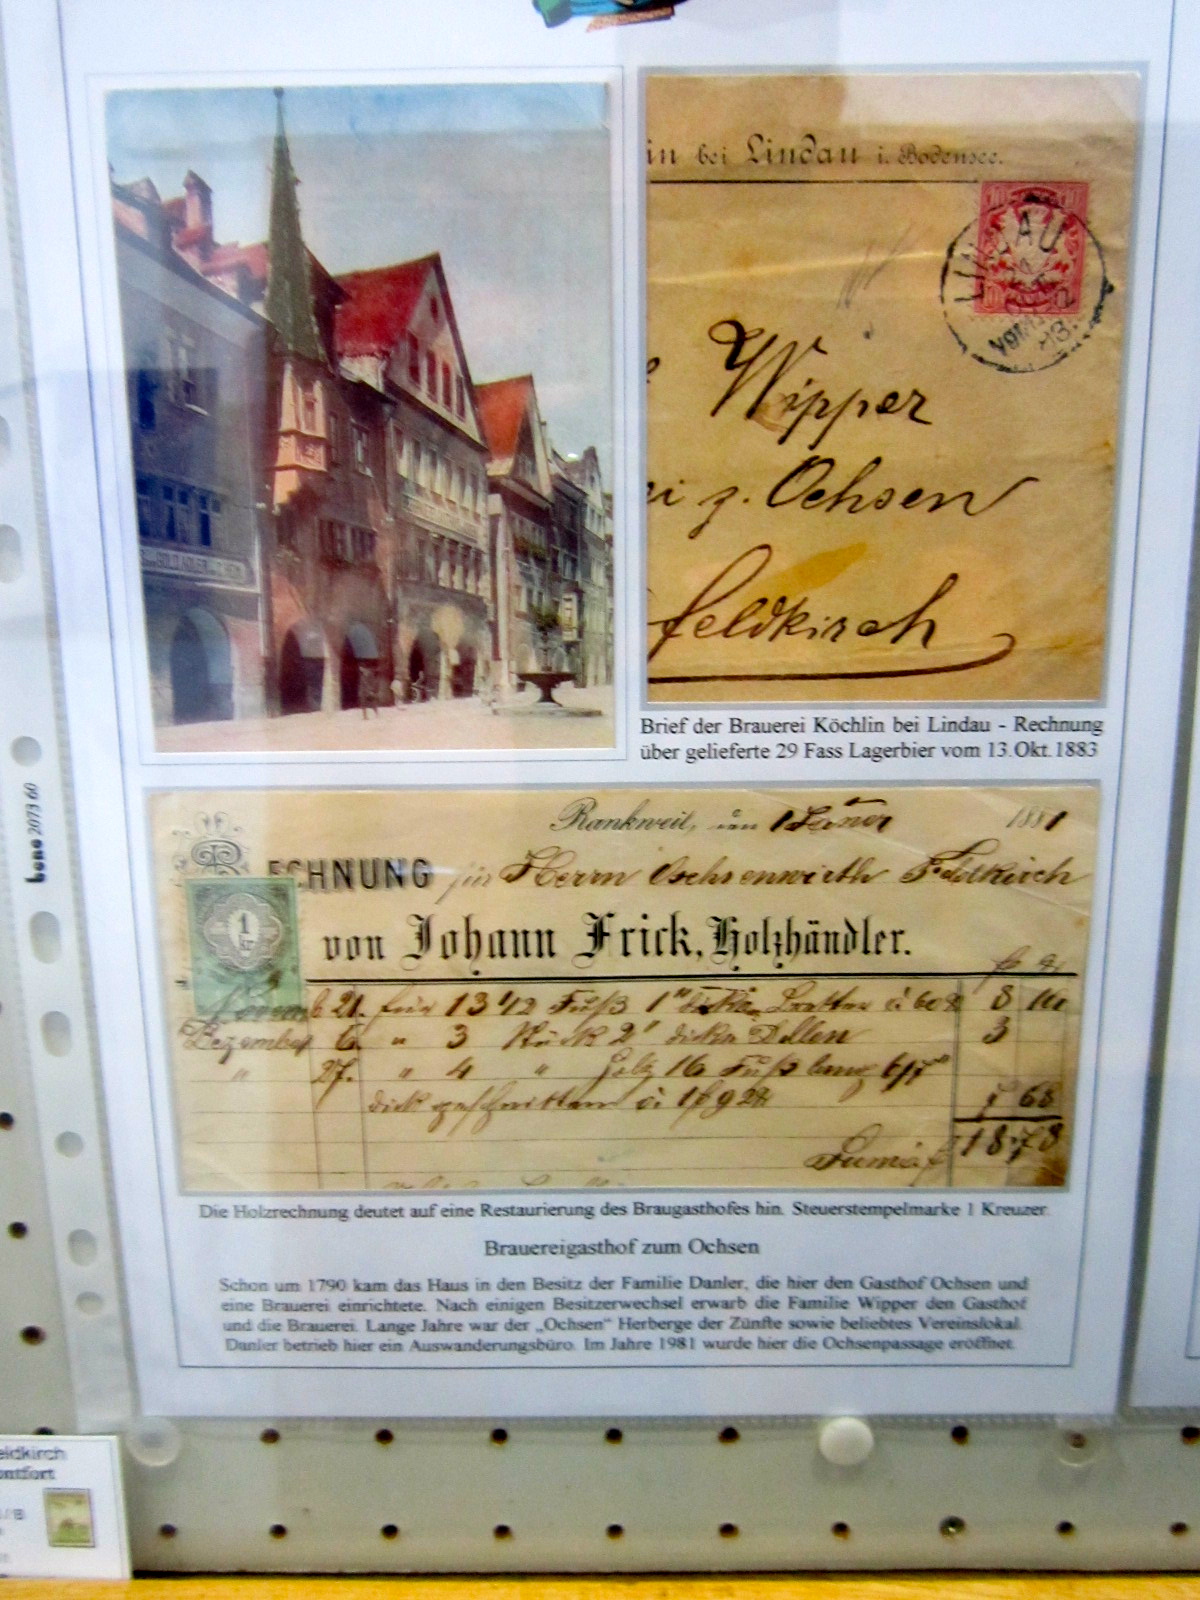 in bei Lindau i. Bodensee.
LINDAU
Wipper
i z. Ochsen
Feldkirch
Brief der Brauerei Köchlin bei Lindau - Rechnung
über gelieferte 29 Fass Lagerbier vom 13.Okt.1883
Rankweil, den 1 1881
ECHNUNG für Herrn Ochsenwirth Feldkirch
1 kr
von Johann Frick, Holzhändler.
21. für 13 1/2 Fuß 1" 8
Dezember 6. " 3 Stück 2" dicke Dallen 3
" 27. " 4 " Holz 16 Fuß lang 6/7"
dick geschnitten à 1 f 92 7 68
Suma f 18.78
Die Holzrechnung deutet auf eine Restaurierung des Braugasthofes hin. Steuerstempelmarke 1 Kreuzer.
Brauereigasthof zum Ochsen
Schon um 1790 kam das Haus in den Besitz der Familie Danler, die hier den Gasthof Ochsen und
eine Brauerei einrichtete. Nach einigen Besitzerwechsel erwarb die Familie Wipper den Gasthof
und die Brauerei. Lange Jahre war der „Ochsen“ Herberge der Zünfte sowie beliebtes Vereinslokal.
Danler betrieb hier ein Auswanderungsbüro. Im Jahre 1981 wurde hier die Ochsenpassage eröffnet.
bene 2073 60
eldkirch
ontfort